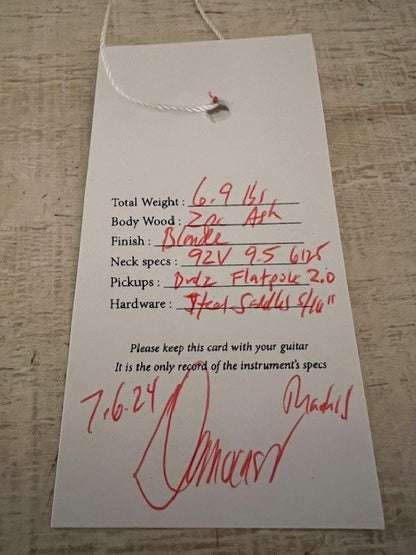 Total Weight : 6.9 lbs
Body Wood : 2pc Ash
Finish : Blonde
Neck specs : 92V 9.5 6125
Pickups : Flatpole 2.0
Hardware : Steel Saddles 5/16"
Please keep this card with your guitar
It is the only record of the instrument's specs
7.6.24